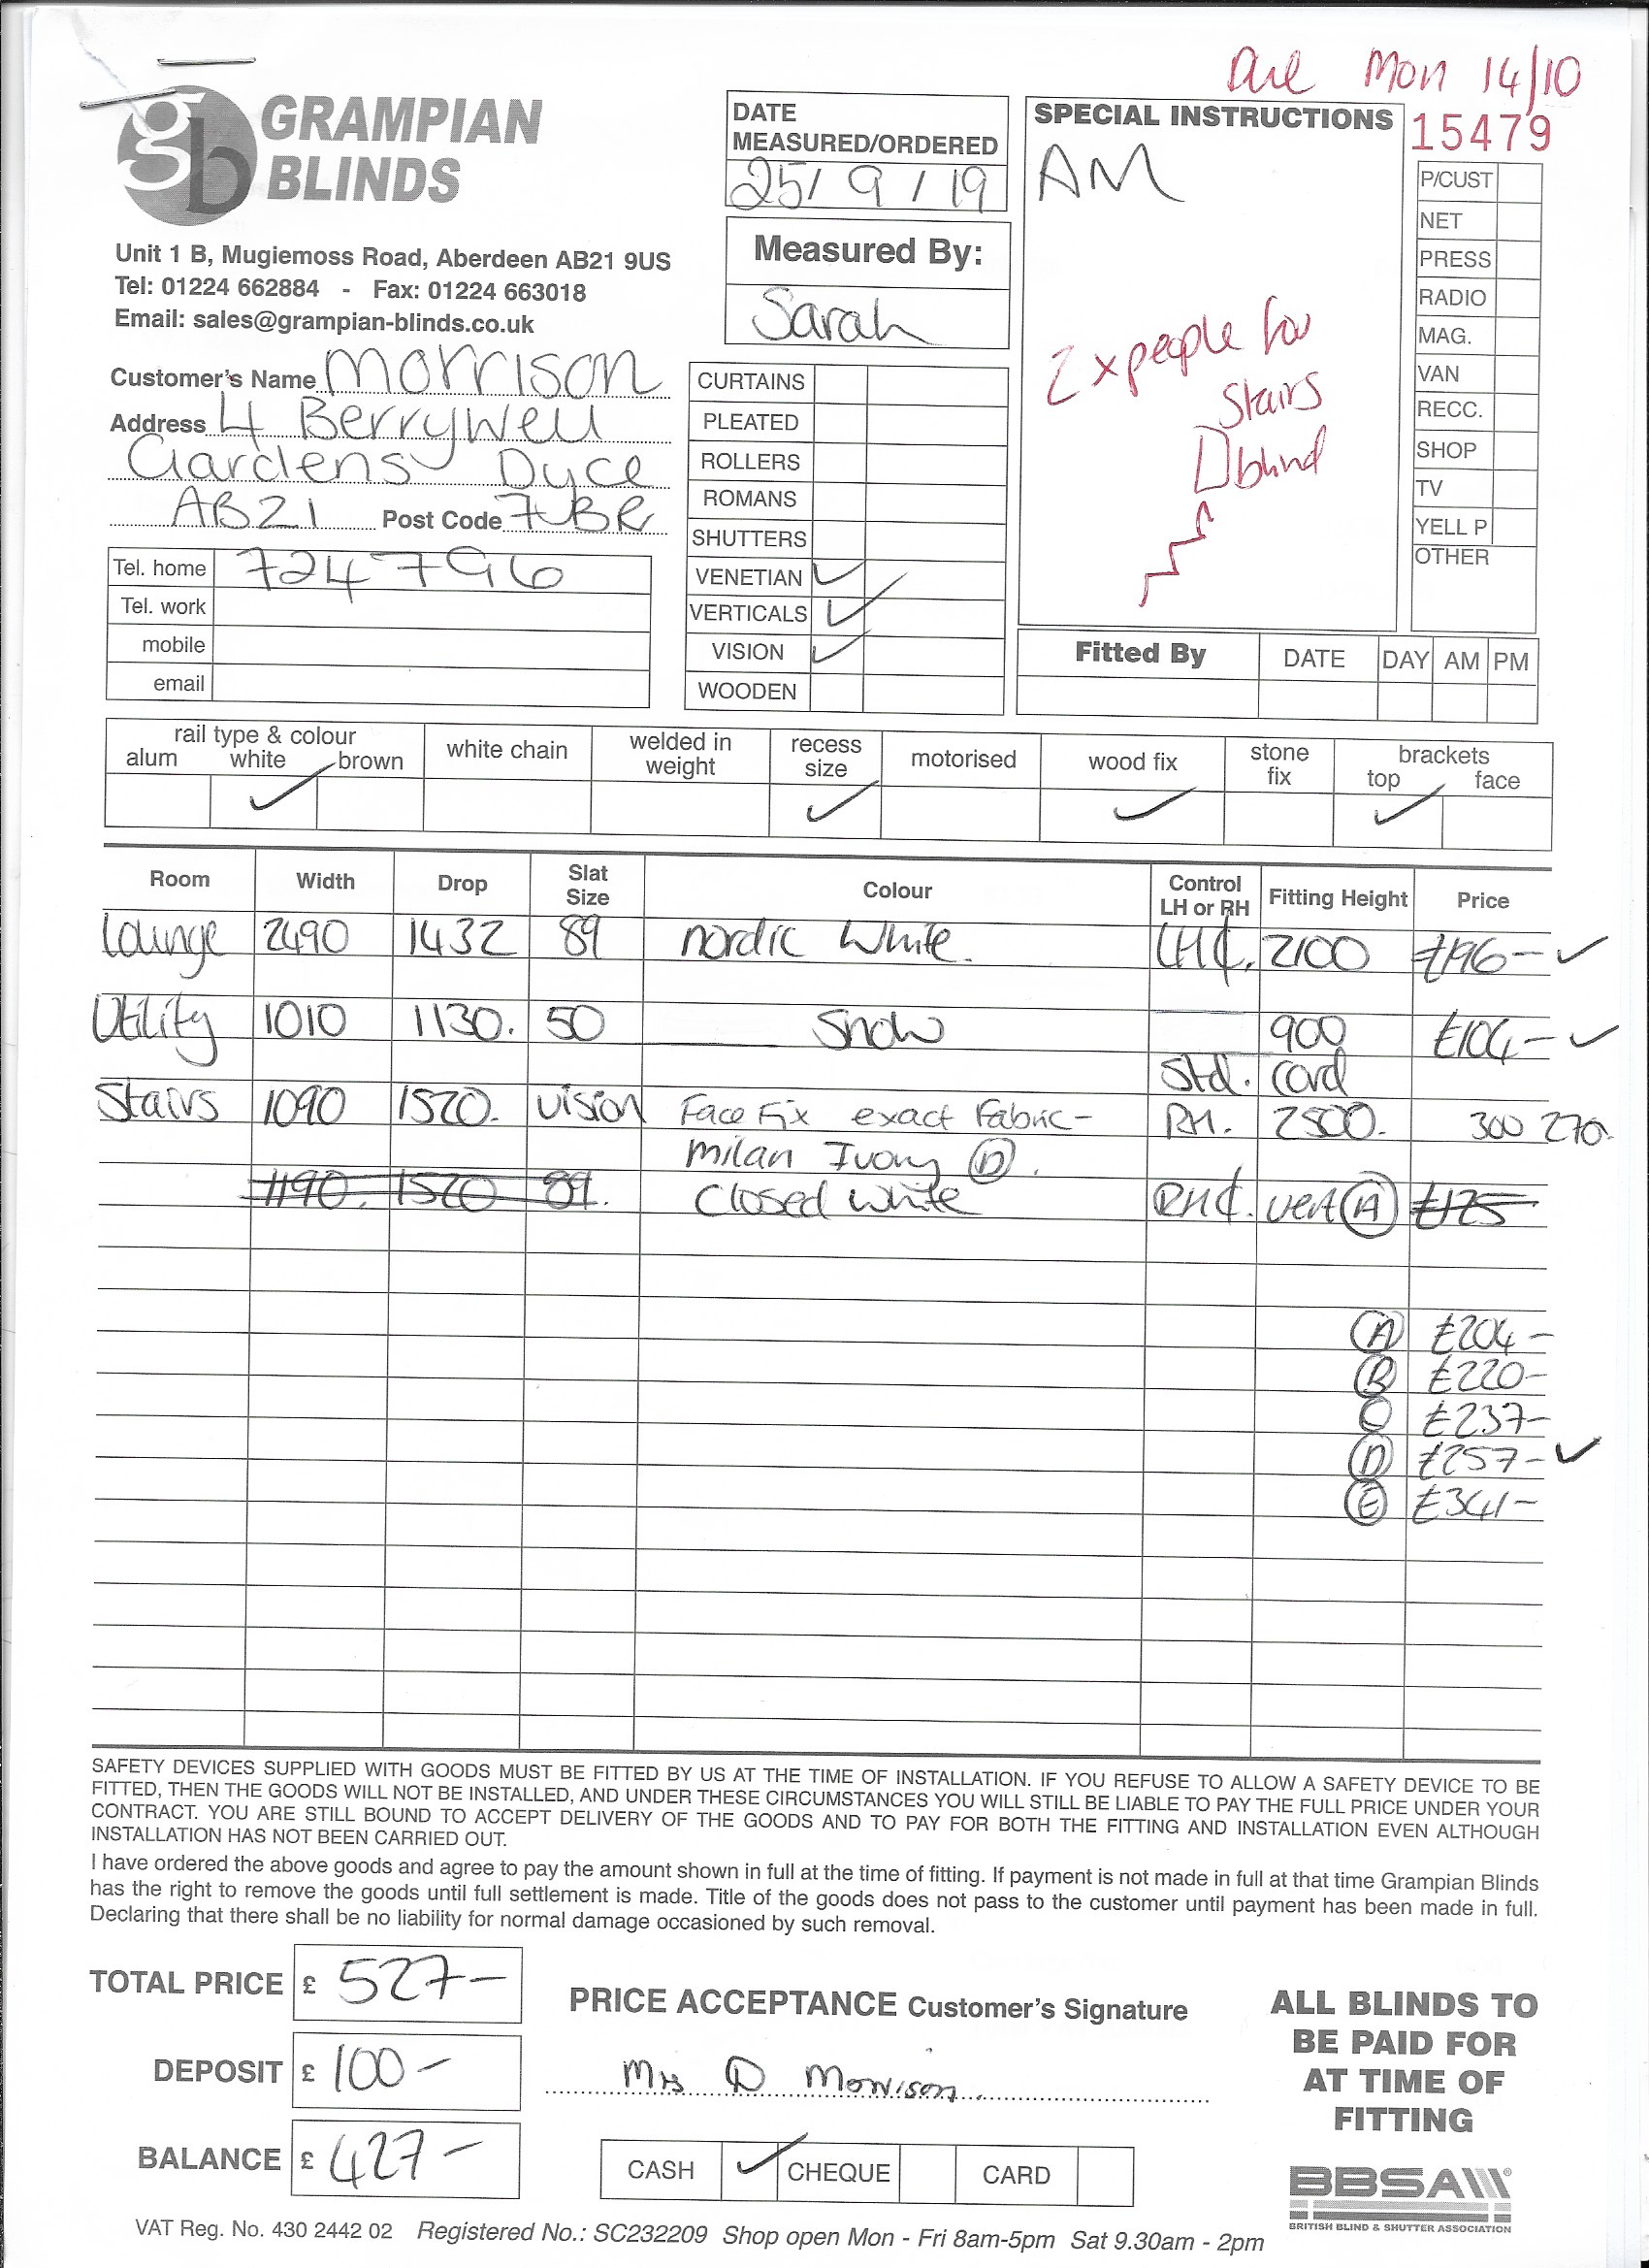 Due Mon 14/10
GRAMPIAN
BLINDS
Unit 1 B, Mugiemoss Road, Aberdeen AB21 9US
Tel: 01224 662884 - Fax: 01224 663018
Email: sales@grampian-blinds.co.uk
Customer's Name Morrison
Address 4 Berrywell
Gardens Dyce
AB21 Post Code 7BR
Tel. home 724796
Tel. work
mobile
email
DATE
MEASURED/ORDERED
25/9/19
Measured By:
Sarah
CURTAINS
PLEATED
ROLLERS
ROMANS
SHUTTERS
VENETIAN ✓
VERTICALS ✓
VISION ✓
WOODEN
SPECIAL INSTRUCTIONS
AM
2 x people for
stairs
blind
15479
P/CUST
NET
PRESS
RADIO
MAG.
VAN
RECC.
SHOP
TV
YELL P
OTHER
Fitted By DATE DAY AM PM
rail type & colour
alum white brown
white chain
welded in
weight
recess
size
motorised
wood fix
stone
fix
brackets
top face
✓ ✓ ✓ ✓
Room Width Drop Slat Size Colour Control LH or RH Fitting Height Price
Lounge 2490 1432 89 nordic White. LH₵. 2100 £196- ✓
Utility 1010 1130. 50 Snow 900 £104- ✓
Std. cord
Stairs 1090 1520. vision Face Fix exact Fabric- RH. 2500. 300 270.
milan Ivory (D).
1190. 1520 89. Closed White RH₵. vert (A) £175
(A) £204-
(B) £220-
(C) £237-
(D) £257- ✓
(E) £341-
SAFETY DEVICES SUPPLIED WITH GOODS MUST BE FITTED BY US AT THE TIME OF INSTALLATION. IF YOU REFUSE TO ALLOW A SAFETY DEVICE TO BE
FITTED, THEN THE GOODS WILL NOT BE INSTALLED, AND UNDER THESE CIRCUMSTANCES YOU WILL STILL BE LIABLE TO PAY THE FULL PRICE UNDER YOUR
CONTRACT. YOU ARE STILL BOUND TO ACCEPT DELIVERY OF THE GOODS AND TO PAY FOR BOTH THE FITTING AND INSTALLATION EVEN ALTHOUGH
INSTALLATION HAS NOT BEEN CARRIED OUT.
I have ordered the above goods and agree to pay the amount shown in full at the time of fitting. If payment is not made in full at that time Grampian Blinds
has the right to remove the goods until full settlement is made. Title of the goods does not pass to the customer until payment has been made in full.
Declaring that there shall be no liability for normal damage occasioned by such removal.
TOTAL PRICE £ 527-
DEPOSIT £ 100-
BALANCE £ 427-
PRICE ACCEPTANCE Customer's Signature
Mrs D Morrison.
CASH ✓ CHEQUE CARD
ALL BLINDS TO
BE PAID FOR
AT TIME OF
FITTING
BBSA
BRITISH BLIND & SHUTTER ASSOCIATION
VAT Reg. No. 430 2442 02 Registered No.: SC232209 Shop open Mon - Fri 8am-5pm Sat 9.30am - 2pm